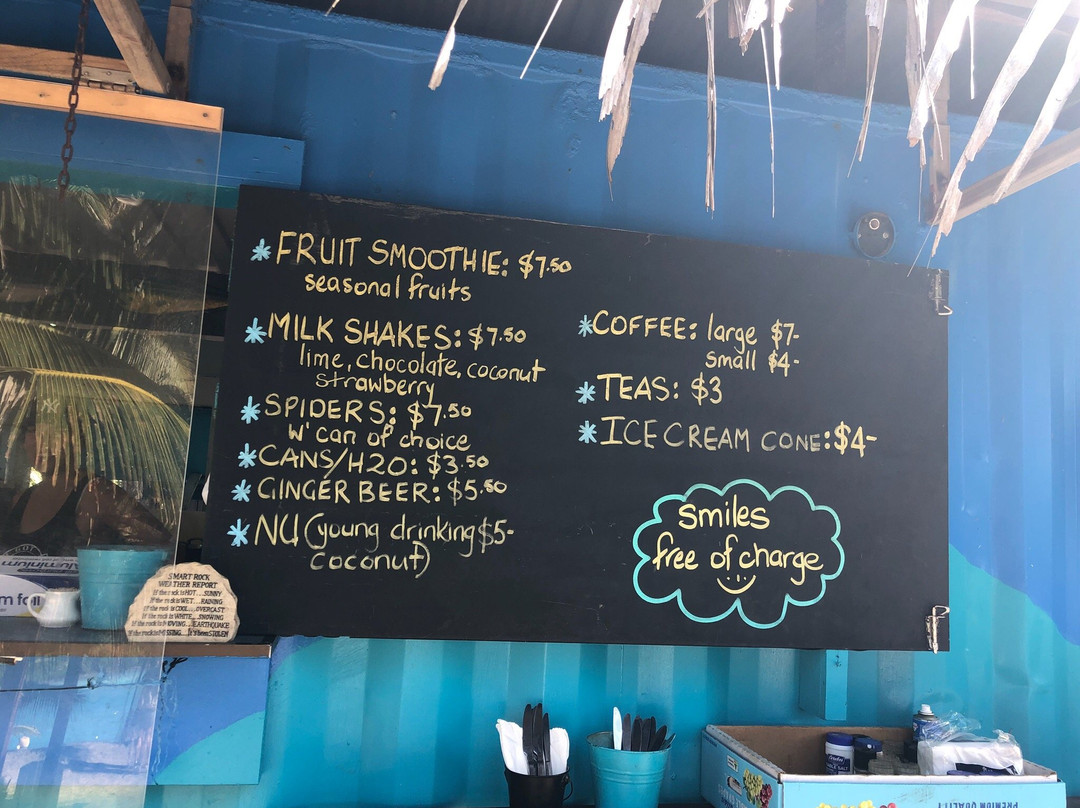 *FRUIT SMOOTHIE: $7.50
seasonal fruits
*MILK SHAKES: $7.50
lime, chocolate, coconut
strawberry
*SPIDERS: $7.50
W' can of choice
*CANS/H2O: $3.50
*GINGER BEER: $5.50
*NU (young drinking $5-
coconut)
*COFFEE: large $7-
small $4-
*TEAS: $3
*ICE CREAM CONE: $4-
smiles
free of charge
SMART ROCK
WEATHER REPORT
If the rock is HOT...SUNNY
If the rock is WET...RAINING
If the rock is COOL...OVERCAST
If the rock is WHITE...SNOWING
If the rock is MOVING...EARTHQUAKE
If the rock is MISSING...It's been STOLEN
Aluminium
m foil
PREMIUM QUALITY